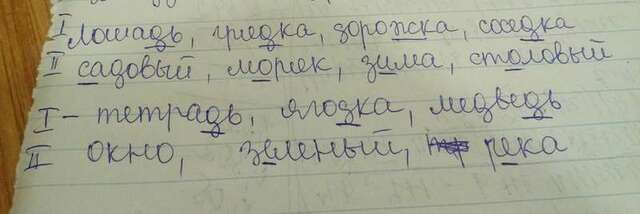 I лошадь, грядка, дорожка, соседка
II садовый, морек, зима, столовый
I - тетрадь, ягодка, медведь
II окно, зеленый, река